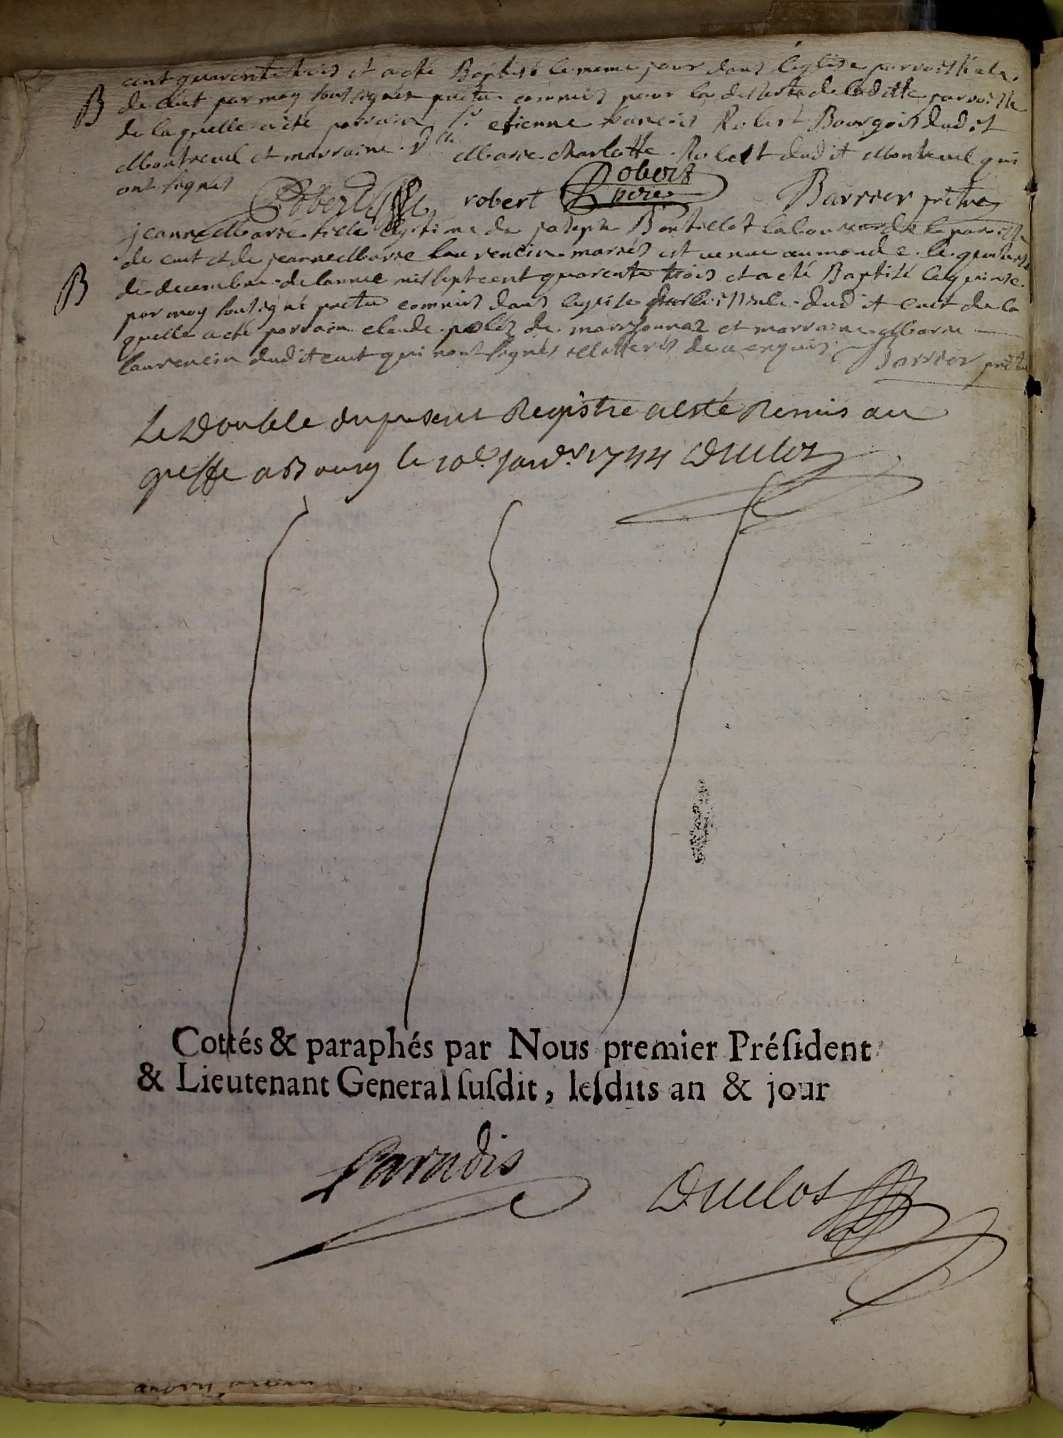 cent quarente trois et a eté Baptisé le meme jour dans l'eglise parroissiale
B de cuet par moy soussigné pretre commis pour la desserte de laditte parroisse
de laquelle a eté parrain Sr etienne francois Robert Bourgois dudit
Montreuil et marraine Dlle Marie charlotte Robert dudit Montreuil qui
ont signes Robert robert Robert pere Barrier prêtre
jeanne Marie fille legitime de joseph Bontillot laboureur de la parroisse
B de cuet et de jeanne Marie laurencin mariés est venue au monde le quinzes
de decembre de l'année mil sept cent quarente trois et a eté Baptisé le quinze
par moy soussigné pretre commis dans l'eglise parroissiale dudit cuet de la
quelle a eté parrain claude de marsonnaz et marraine Marie
laurencin dudit cuet qui n'ont signés illitterés de ce enquis Barrier prêtre
Le Double du present Registre a esté Remis au
greffe a Bourg le 10e janvr 1744 Duclos
Cottés & paraphés par Nous premier Préſident
& Lieutenant General ſuſdit, leſdits an & jour
Paradis Duclos